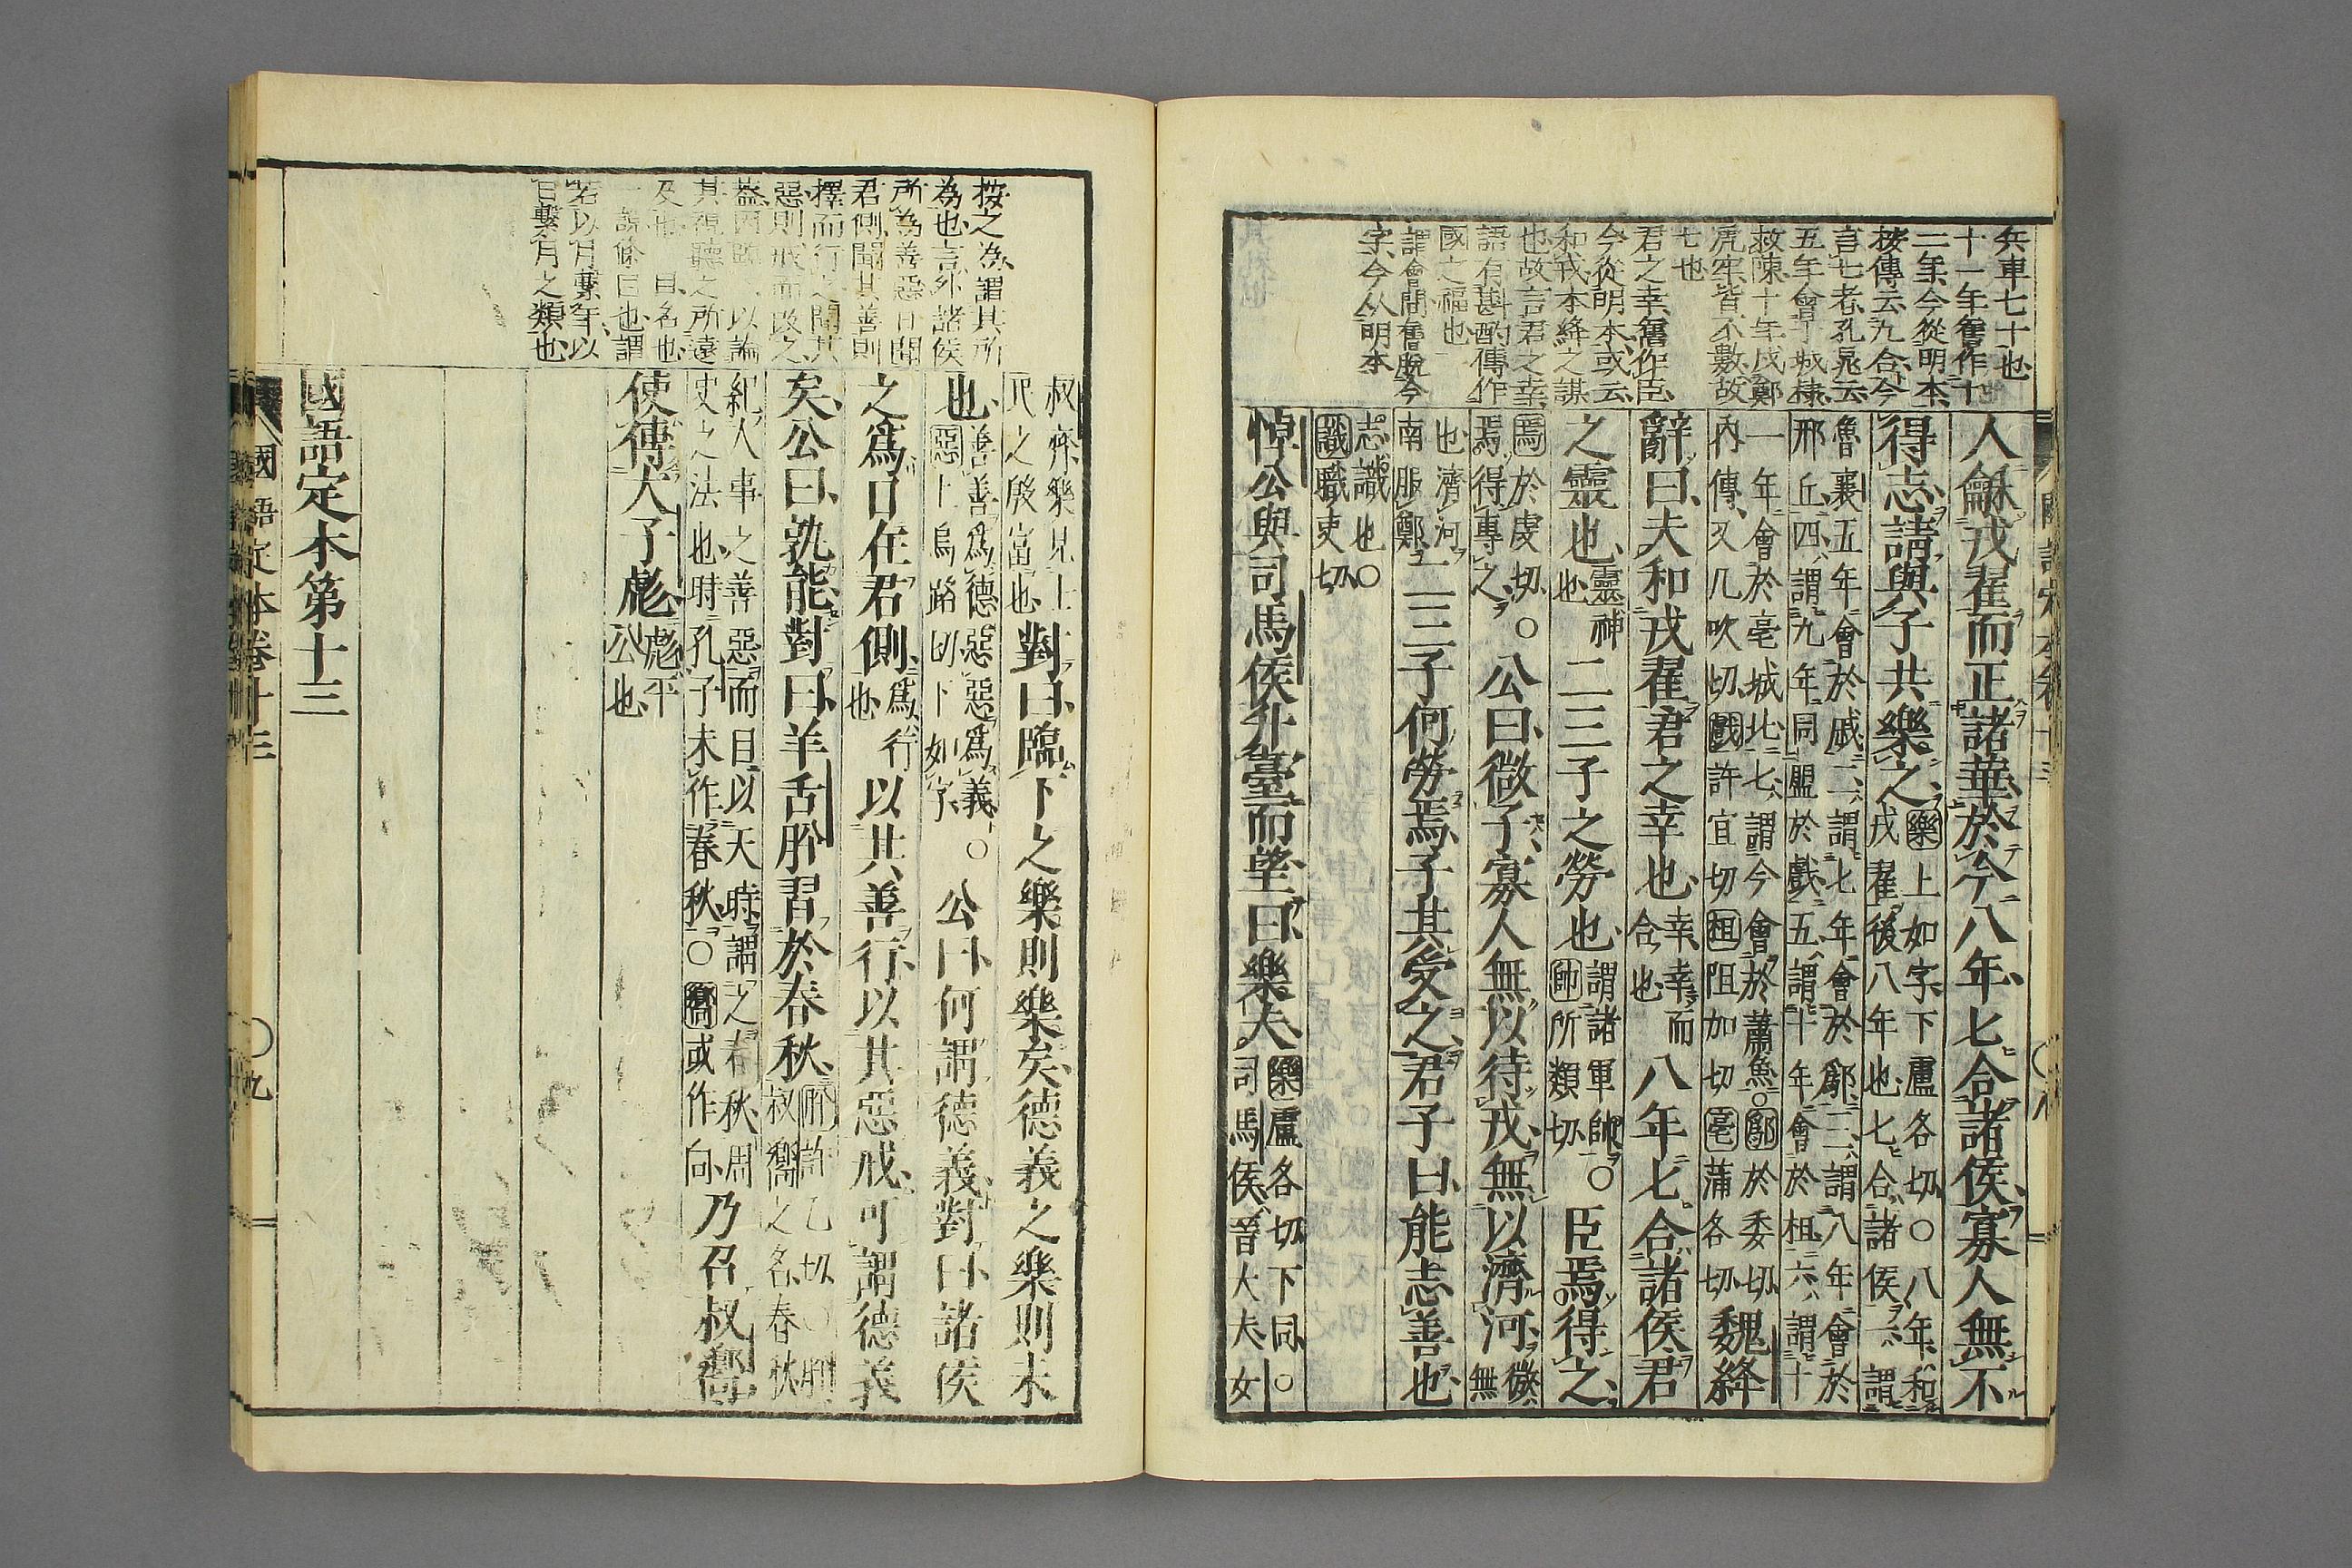 兵車七十也
十一年舊作十
二年今從明本
按傳云九合今
言七者孔晁云
五年會于城棣
救陳十年戍鄭
虎牢皆不數故
七也
君之幸舊作臣
今從明本或云
和戎本絳之謀
也故言君之幸
語有斟酌傳作
國之福也
謂會間舊脫今
字今从明本
人龢戎翟而正諸華於今八年七合諸侯寡人無不
得志請與子共樂之樂上如字下盧各切〇八年和
戎翟後八年也七合諸侯一謂
魯襄五年會於戚二謂七年會於鄬三謂八年會於
邢丘四謂九年同盟於戲五謂十年會於柤六謂十
一年會於亳城北七謂今會於蕭魚〇鄬於委切
內傳又几吹切戲許宜切柤阻加切亳蒲各切魏絳
辭曰夫和戎翟君之幸也幸幸而合也八年七合諸侯君
之靈也靈神也二三子之勞也謂諸軍帥〇帥所類切臣焉得之
焉於虔切〇焉得專之公曰微子寡人無以待戎無以濟河微無
也濟河南服鄭二三子何勞焉子其受之君子曰能志善也
志識也〇識職吏切
悼公與司馬侯升臺而望曰樂夫樂盧各切下同〇司馬侯晉大夫女
國語定本卷十三
〇八
按之為謂其所
為也言外諸侯
所為善惡日聞
君側聞其善則
擇而行之聞其
惡則戒而改之
蓋因臨下以論
其視聽之所遠
及也 日名也
一說脩日也謂
若以月繫年以
日繫月之類也
叔齊樂見上
咒之殷富也對曰臨下之樂則樂矣德義之樂則未
也善善為德惡惡為義〇惡上烏路切下如字公曰何謂德義對曰諸侯
之爲日在君側爲行也以其善行以其惡戒可謂德義
矣公曰孰能對曰羊舌肸習於春秋肸許乙切〇肸叔嚮之名春秋
紀人事之善惡而目以天時謂之春秋周
史之法也時孔子未作春秋〇嚮或作向乃召叔嚮
使傅大子彪彪平公也
國語定本第十三
國語定本卷十三
〇九